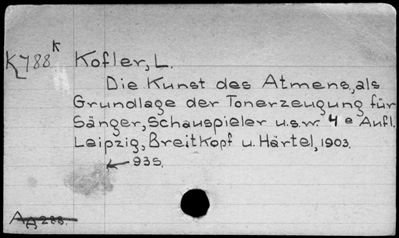 K788k Kofler, L.
Die Kunst des Atmens, als
Grundlage der Tonerzeugung für
Sänger, Schauspieler u.s.w. 4e Aufl.
Leipzig, Breitkopf u. Härtel, 1903.
935.